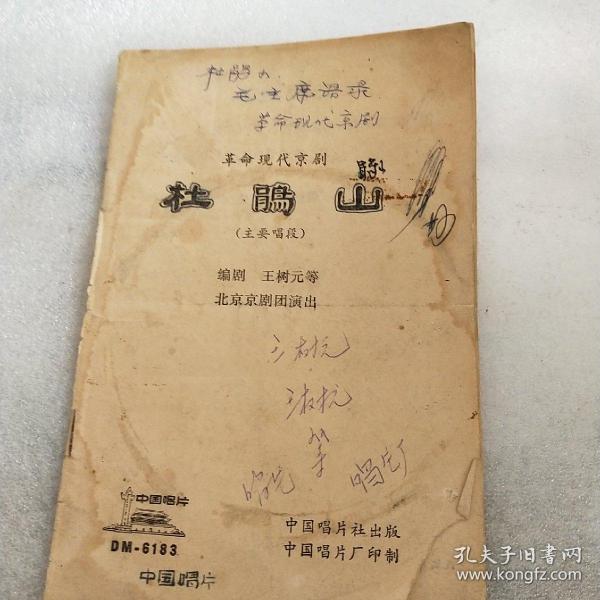 杜鹃山
毛主席语录
革命现代京剧
革命现代京剧
杜鹃山
(主要唱段)
编剧 王树元等
北京京剧团演出
中国唱片
DM-6183
中国唱片社出版
中国唱片厂印制
中国唱片
孔夫子旧书网
www.kongfz.com